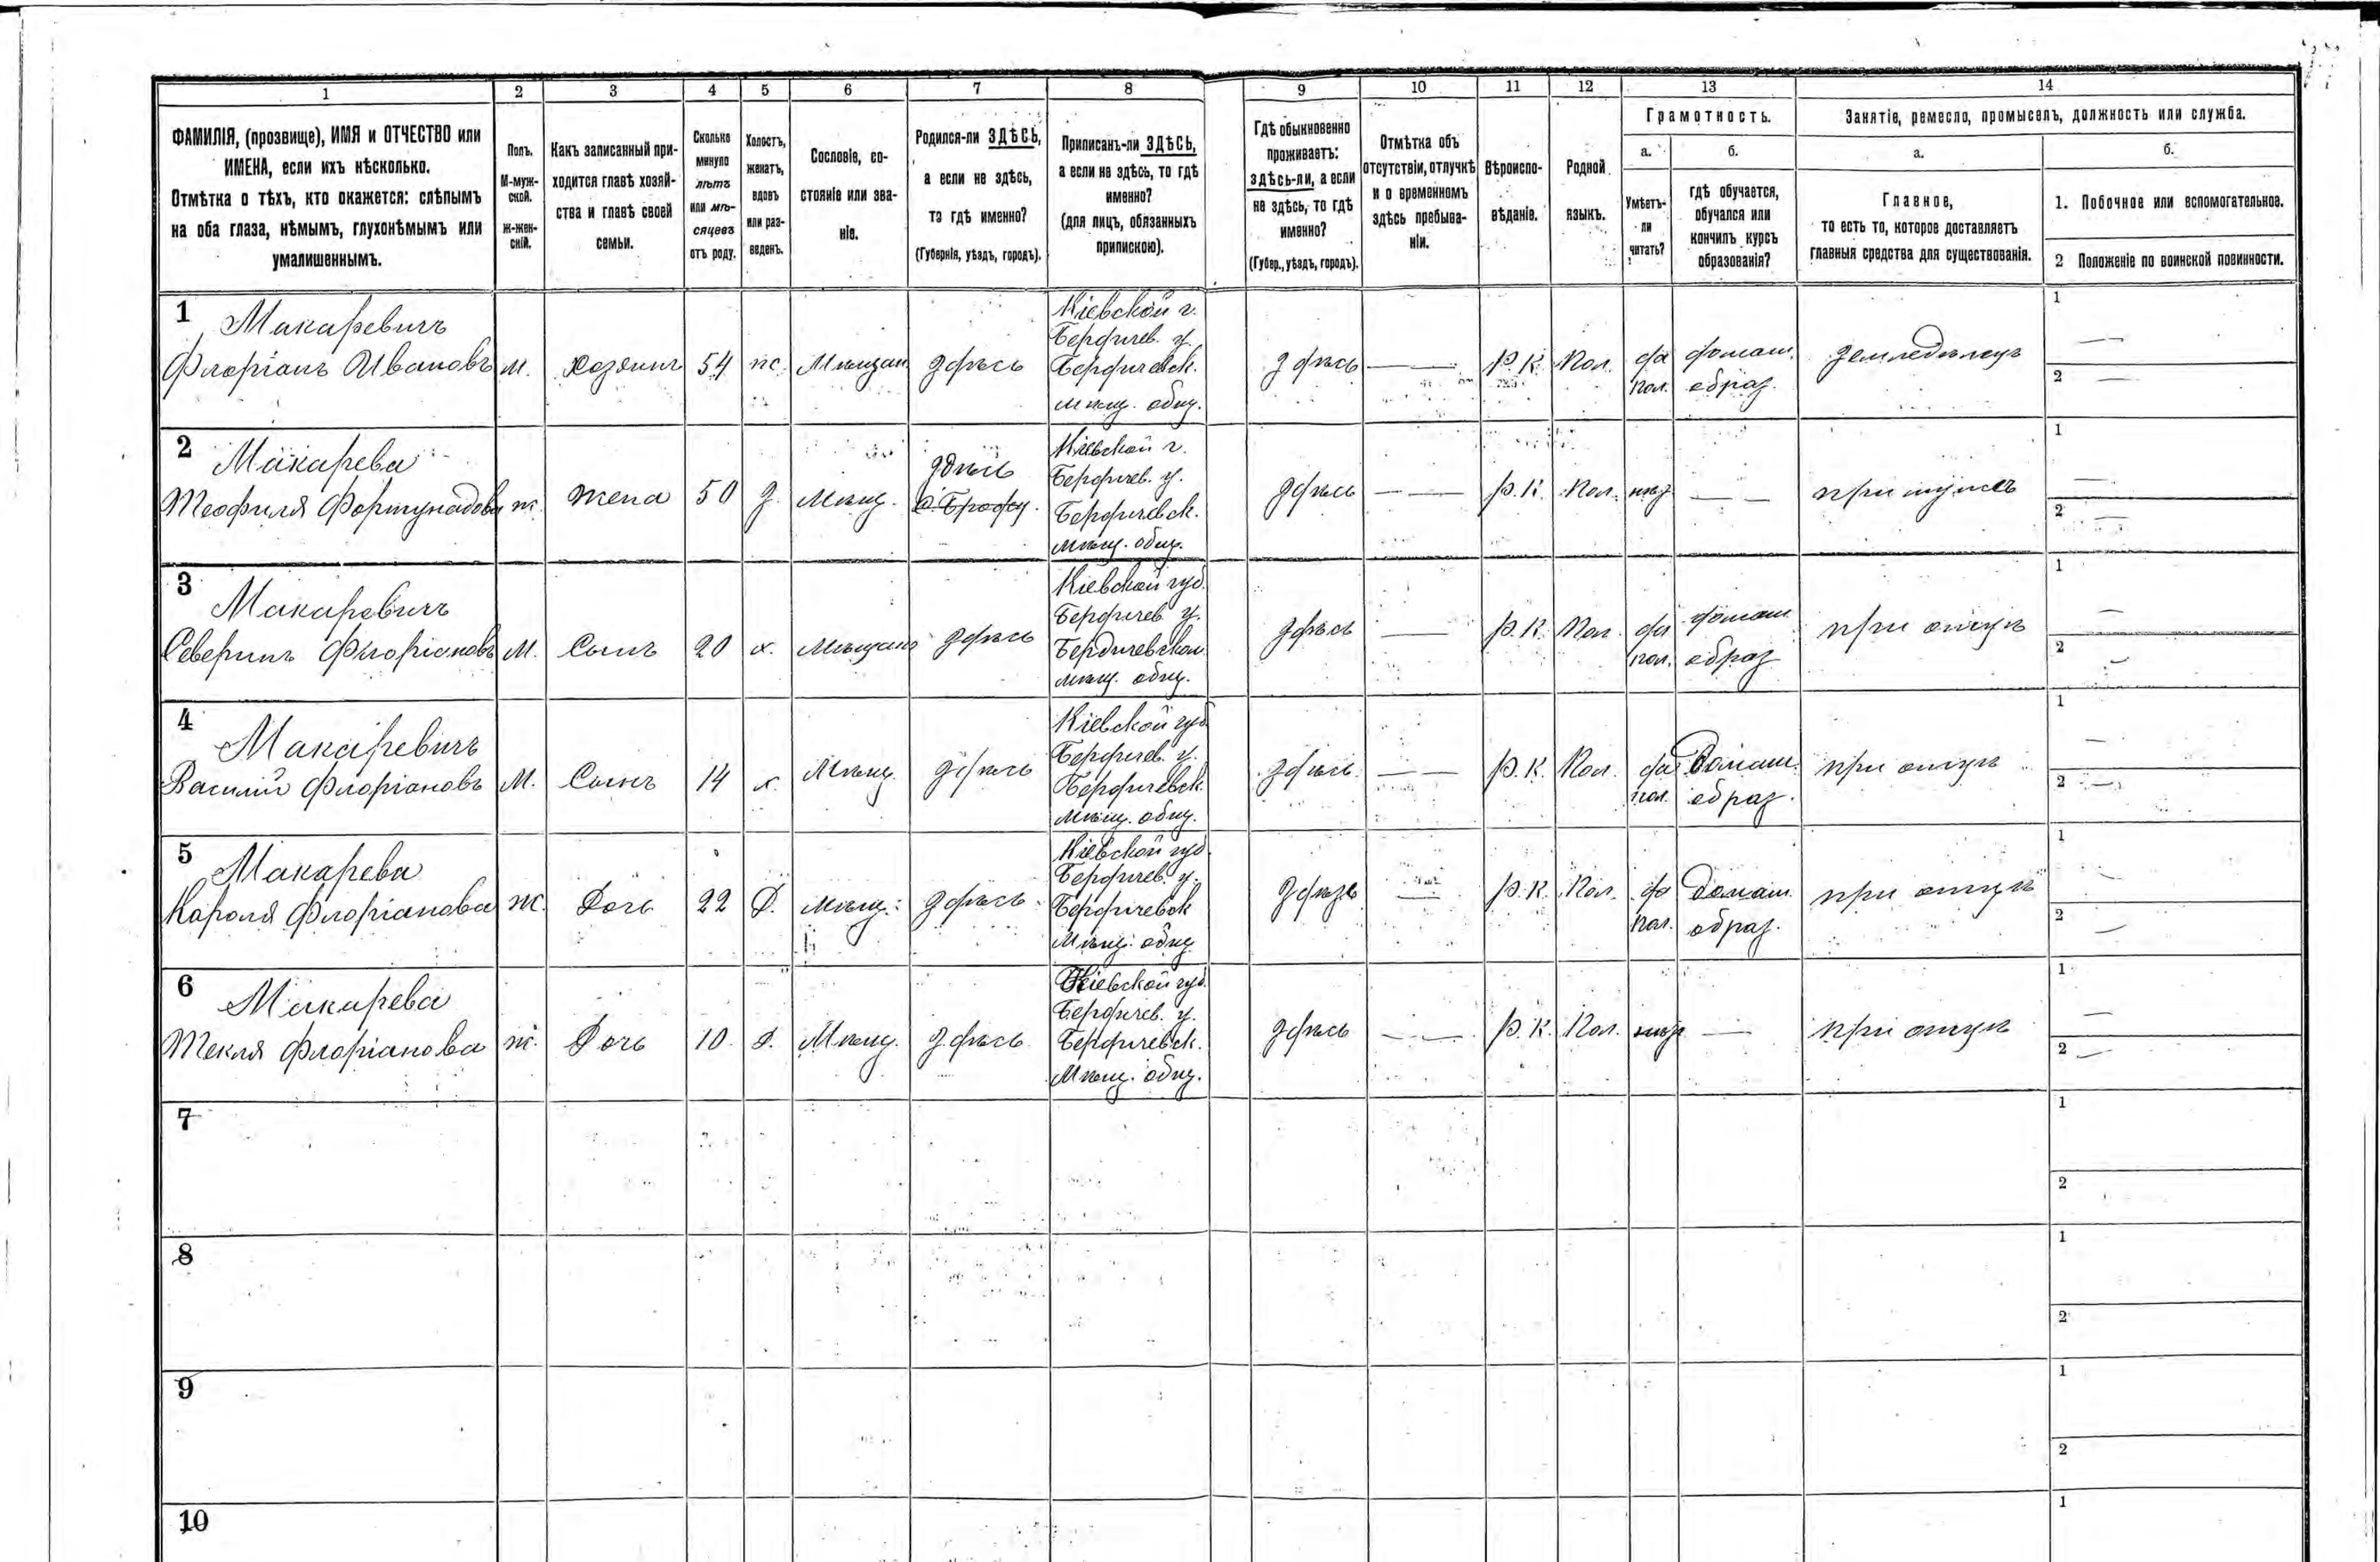 1 2 3 4 5 6 7 8 9 10 11 12 13 14
ФАМИЛІЯ, (прозвище), ИМЯ и ОТЧЕСТВО или
ИМЕНА, если ихъ нѣсколько.
Отмѣтка о тѣхъ, кто окажется: слѣпымъ
на оба глаза, нѣмымъ, глухонѣмымъ или
умалишеннымъ.
Полъ.
М-муж-
ской.
Ж-жен-
скій.
Какъ записанный при-
ходится главѣ хозяй-
ства и главѣ своей
семьи.
Сколько
минуло
лѣтъ
или мѣ-
сяцевъ
отъ роду.
Холостъ,
женатъ,
вдовъ
или раз-
веденъ.
Сословіе, со-
стояніе или зва-
ніе.
Родился-ли ЗДѢСЬ,
а если не здѣсь,
то гдѣ именно?
(Губернія, уѣздъ, городъ).
Приписанъ-ли ЗДѢСЬ,
а если не здѣсь, то гдѣ
именно?
(для лицъ, обязанныхъ
припискою).
Гдѣ обыкновенно
проживаетъ:
здѣсь-ли, а если
не здѣсь, то гдѣ
именно?
(Губер., уѣздъ, городъ).
Отмѣтка объ
отсутствіи, отлучкѣ
и о временномъ
здѣсь пребыва-
ніи.
Вѣроиспо-
вѣданіе.
Родной
языкъ.
Грамотность.
а.
Умѣетъ-
ли
читать?
б.
гдѣ обучается,
обучался или
кончилъ курсъ
образованія?
Занятіе, ремесло, промыселъ, должность или служба.
а.
Главное,
то есть то, которое доставляетъ
главныя средства для существованія.
б.
1. Побочное или вспомогательное.
2 Положеніе по воинской повинности.
1
Макаревичъ
Флоріанъ Ивановъ
М.
Хозяинъ
54
ж.
Мѣщан
здѣсь
Кіевской г.
Бердичев. у.
Бердичевск.
мѣщ. общ.
здѣсь
——
Р. К.
Пол.
да
пол.
домаш.
образ.
земледѣлецъ
1 —
2 —
2
Макарева
Теофиля Фортунадова
ж.
жена
50
з.
Мѣщ.
здѣсь
Кіевской г.
Бердичев. у.
Бердичевск.
мѣщ. общ.
здѣсь
——
Р. К.
Пол.
нѣт
——
при мужѣ
1 —
2 —
3
Макаревичъ
Северинъ Флоріановъ
М.
Сынъ
20
х.
Мѣщане
здѣсь
Кіевской губ.
Бердичев. у.
Бердичевском
мѣщ. общ.
здѣсь
—
Р. К.
Пол.
да
пол.
домаш
образ
при отцѣ
1 —
2 —
4
Макаревичъ
Василій Флоріановъ
М.
Сынъ
14
х.
Мѣщ.
здѣсь
Кіевской губ.
Бердичев. у.
Бердичевск.
мѣщ. общ.
здѣсь.
——
Р. К.
Пол.
да
пол.
Домаш.
образ.
при отцѣ
1 —
2 —
5
Макарева
Кароля Флоріанова
ж.
Дочь
22
Д.
мѣщ.
здѣсь.
Кіевской губ.
Бердичев. у.
Бердичевск
Мѣщ. общ
здѣсь
—
Р. К.
Пол.
да
пол.
Домаш.
образ.
при отцѣ
1
2 —
6
Макарева
Текля Флоріанова
ж.
Дочь
10.
Д.
Мѣщ.
здѣсь
Кіевской губ.
Бердичев. у.
Бердичевск.
Мѣщ. общ.
здѣсь
——
Р. К.
Пол.
нѣт
—
при отцѣ
1 —
2 —
7
1
2
8
1
2
9
1
2
10
1